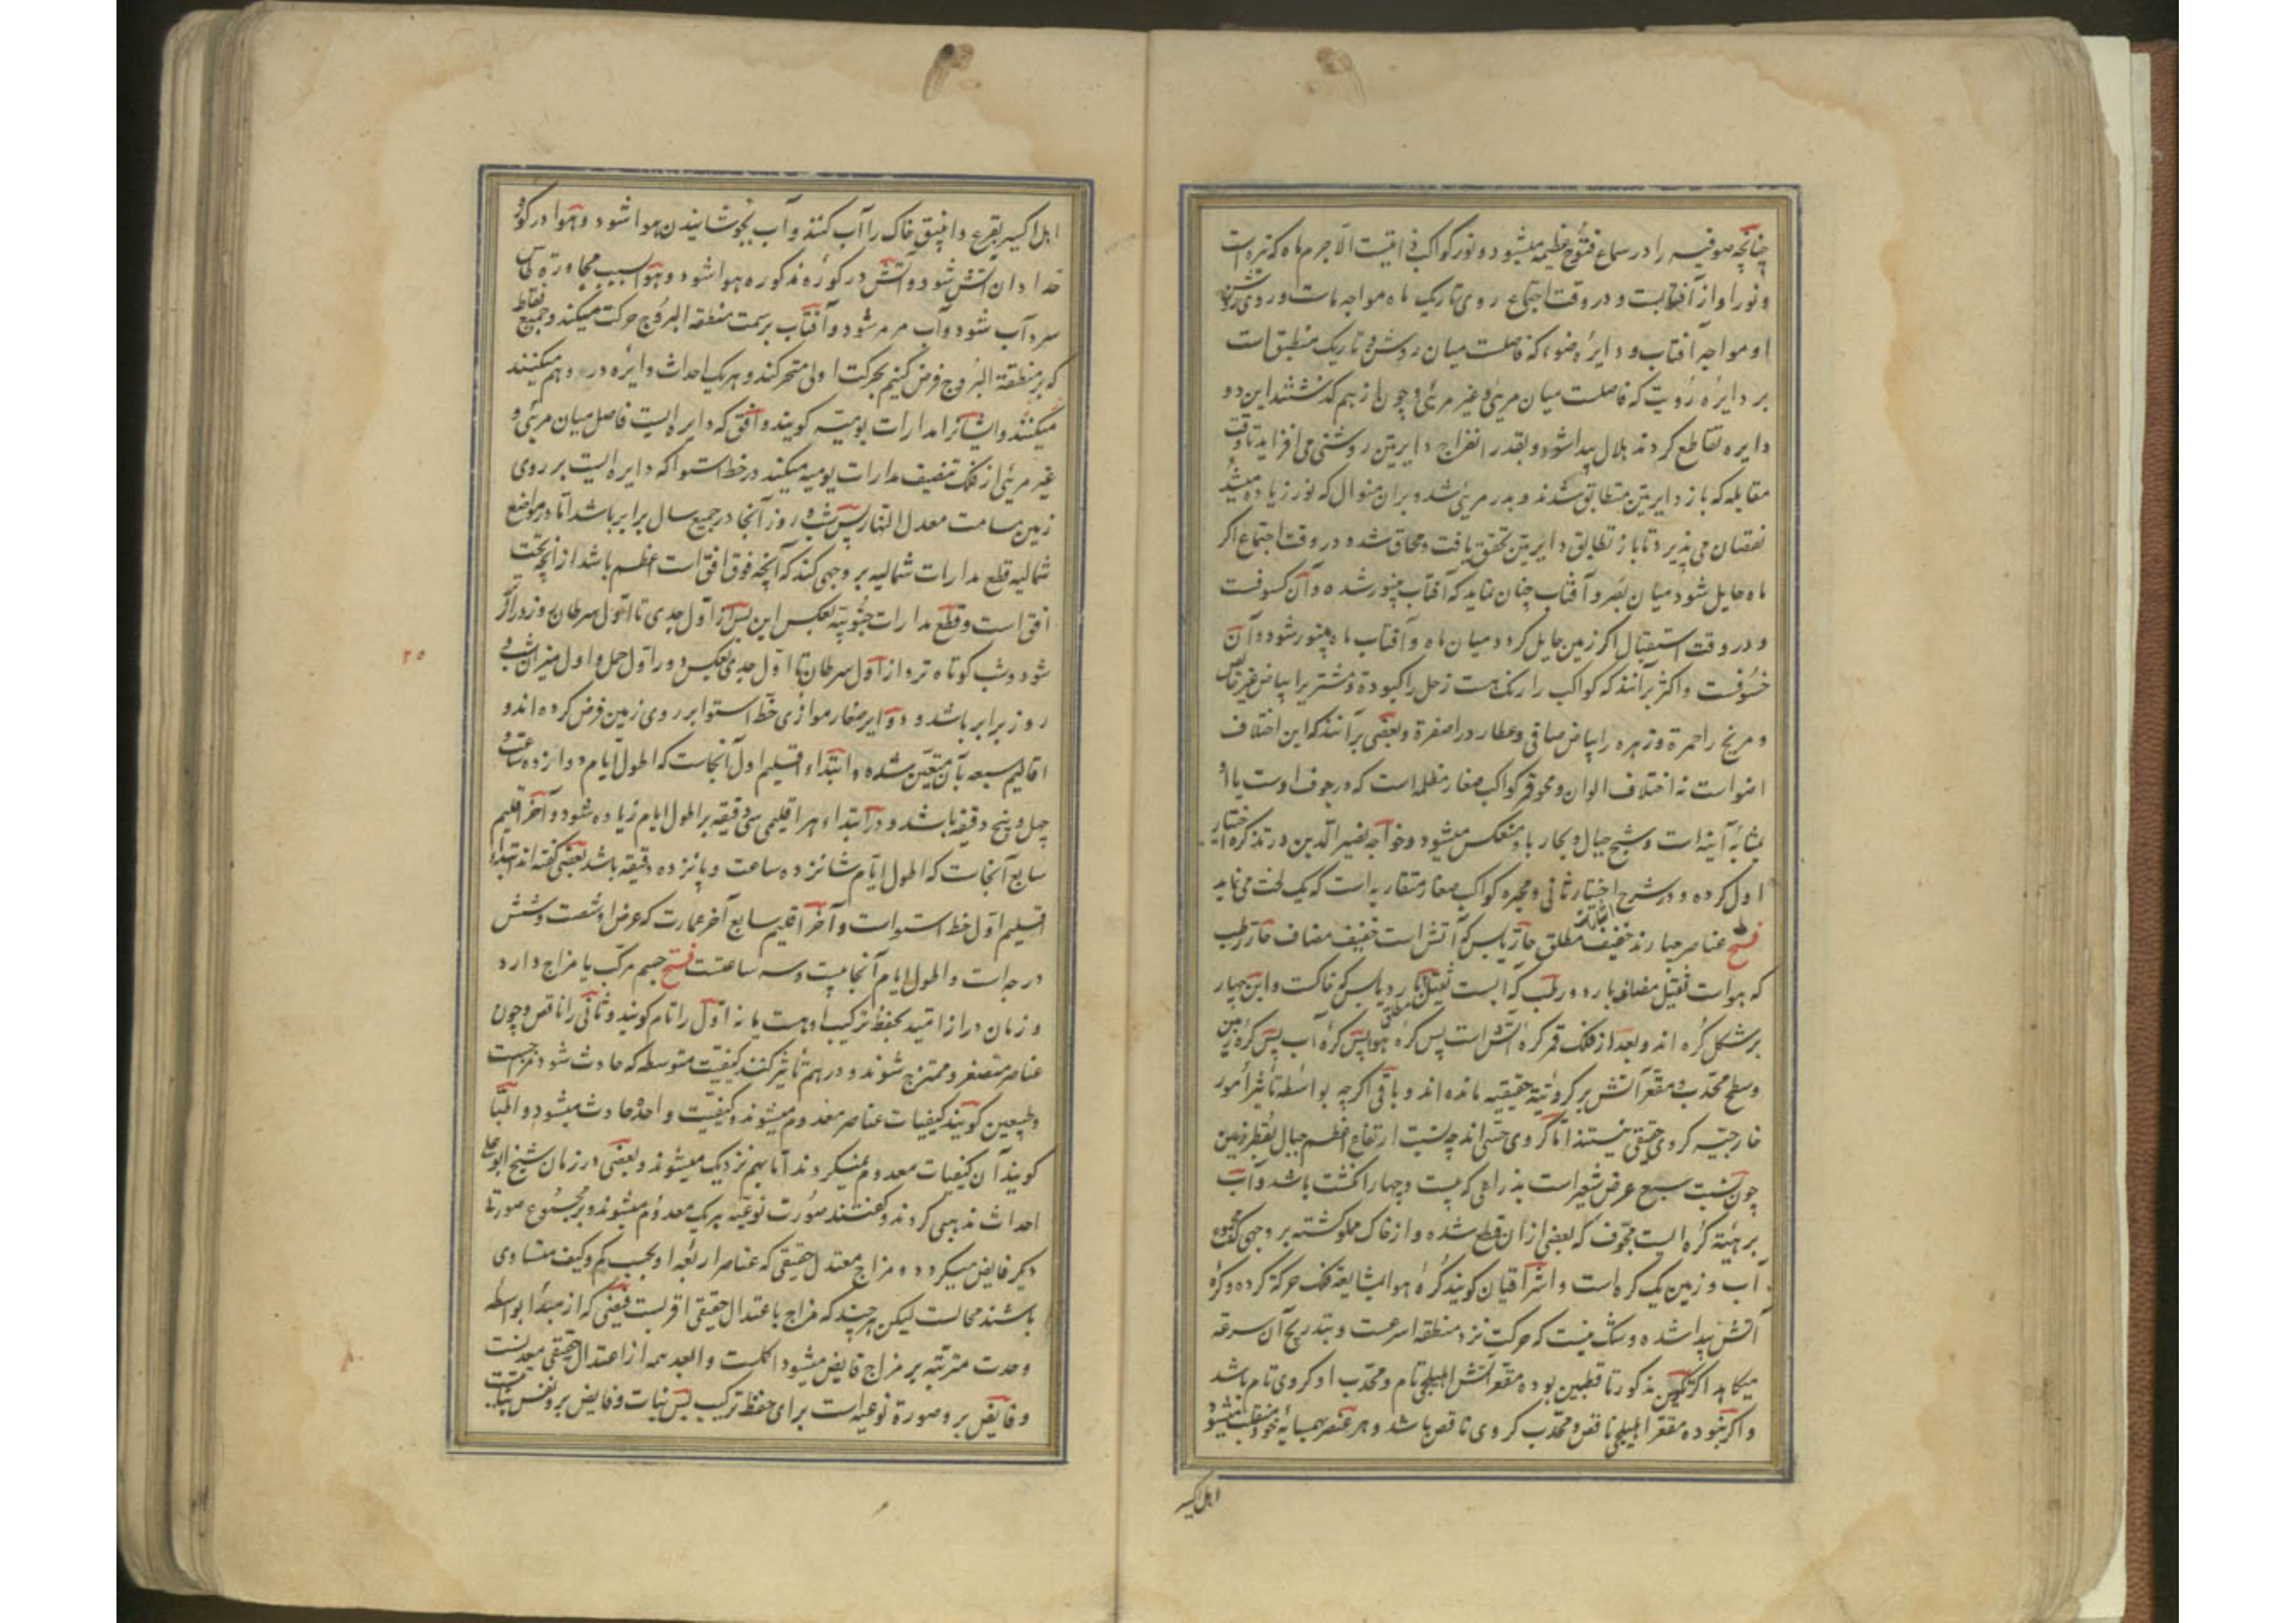 چنانچه صوفیه را در سماع فتوح عظیمه میشود و نور کواکب ذاتیست الا جرم ماه که تیره است
و نور او از آفتابست و در وقت اجتماع روی تاریک ماه مواجه ماست و روی روشن
او مواجه آفتاب و دایره ضوء که فاصلست میان روشن و تاریک منطبق است
بر دایره رؤیت که فاصلست میان مرئی و غیر مرئی و چون از هم گذشتند این دو
دایره تقاطع کردند هلال پیدا شود و بقدر انفراج دایرتین روشنی می افزاید تا وقت
مقابله که باز دایرتین متطابق شدند و بدر مرئی شد و بران منوال که نور زیاده میشد
نقصان می پذیرد تا باز تطابق دایرتین تحقق یافت و محاق شد و در وقت اجتماع اگر
ماه حایل شود میان بصر و آفتاب چنان نماید که آفتاب بینور شده و آن کسوفست
و در وقت استقبال اگر زمین حایل گردد میان ماه و آفتاب ماه بینور شود و آن
خسوفست و اکثر برآنند که کواکب را رنگ هست زحل را کبودة و مشتری را بیاض غیر خالص
و مریخ را حمرة و زهره را بیاض صافی و عطارد را صفرة و بعضی برآنند که این اختلاف
اضواست نه اختلاف الوان و محو قمر کواکب صغار مظلمه است که در جوف اوست یا او
بمثابه آینه است و شبح جبال و بحار باو منعکس میشود و خواجه نصیر الدین در تذکره اختیار
اول کرده و در شرح اختیار ثانی و مجره کواکب صغار متقاربه است که یک لخت می نماید
فتح عناصر چهارند خفیف مطلق حار یابس که آتش است خفیف مضاف حار رطب
که هواست ثقیل مضاف بارد و رطب که آبست ثقیل مطلق بارد یابس که خاکست و این چهار
بر شکل کره اند و بعد از فلک قمر کره آتش است پس کره هوا پس کره آب پس کره زمین
و سطح محدب و مقعر آتش بر کرویة حقیقیه مانده اند و باقی اگرچه بواسطه تأثیر امور
خارجیه کروی حقیقی نیستند اما کروی حسی اند چه نسبت ارتفاع اعظم جبال بقطر زمین
چون نسبت سبع عرض شعیر است بذراعی که بیست و چهار انگشت باشد و آب
بر هیئة کره ایست مجوف که بعضی ازان قطع شده و از خاک مملو گشته بر وجهی که مجموع
آب و زمین یک کره است و اشراقیان گویند کره هوا بمشایعة فلک حرکة کرده و کره
آتش پیدا شده و شک نیست که حرکت نزد منطقه اسرعست و بتدریج آن سرعة
میکاهد اگر تکون مذکور تا قطبین بوده مقعر آتش اهلیلجی تام و محدب او کروی تام باشد
و اگر نبوده مقعر اهلیلجی ناقص و محدب کروی ناقص باشد و هر عنصر بهمسایه خود منقلب میشود
اهل اکسیر
اهل اکسیر بقرع و انبیق خاک را آب کنند و آب بجوشانیدن هوا شود و هوا در کوره
حدادان آتش شود و آتش در کوره مذکوره هوا شود و هوا بسبب مجاورة
سرد آب شود و آب مرمر شود و آفتاب بر سمت منطقه البروج حرکت میکند و جمیع نقاط
که بر منطقة البروج فرض کنیم بحرکت اولی متحرکند و هر یک احداث دایره در وهم میکنند
میکنند و ایشانرا مدارات یومیه گویند و افق که دایره ایست فاصل میان مرئی و
غیر مرئی از فلک تنصیف مدارات یومیه میکند در خط استوا که دایره ایست بر روی
زمین مسامت معدل النهار پس شب و روز آنجا در جمیع سال برابر باشد اما در مواضع
شمالیه قطع مدارات شمالیه بر وجهی کند که آنچه فوق افق است اعظم باشد از انچه تحت
افق است و قطع مدارات جنوبیه بعکس این پس از اول جدی تا اول سرطان روز درازتر
شود و شب کوتاه تر و از اول سرطان تا اول جدی بعکس و در اول حمل و اول میزان شب و
۲۵
روز برابر باشد و دوایر صغار موازی خط استوا بر روی زمین فرض کرده اند و
اقالیم سبعه بآن متعین شده و ابتداء اقلیم اول آنجاست که اطول ایام دوازده ساعت و
چهل و پنج دقیقه باشد و در ابتداء هر اقلیمی سی دقیقه بر اطول ایام زیاده شود و آخر اقلیم
سابع آنجاست که اطول ایام شانزده ساعت و پانزده دقیقه باشد بعضی گفته اند ابتداء
اقلیم اول خط استواست و آخر اقلیم سابع آخر عمارت که عرض او شصت و شش
درجه است و اطول ایام آنجا بیست و سه ساعتست فتح جسم مرکب یا مزاج دارد
و زمان دراز امید بحفظ ترکیب او هست یا نه اول را تام گویند و ثانی را ناقص و چون
عناصر متصغر و ممتزج شوند و در هم تأثیر کنند کیفیت متوسطه که حادث شود مزاجست
و طبیعیین گویند کیفیات عناصر معدوم میشوند و کیفیت واحده حادث میشود و اطبا
گویند آن کیفیات معدوم نمیگردند اما بهم نزدیک میشوند و بعضی در زمان شیخ ابو علی
احداث مذهبی کردند و گفتند صورت نوعیه هر یک معدوم میشوند و بر مجموع صورتی
دیگر فایض میگردد و مزاج معتدل حقیقی که عناصر اربعه او بحسب کم و کیف متساوی
باشند محالست لیکن هر چند که مزاج باعتدال حقیقی اقربست فیضی که از مبدأ بواسطه
وحدت مترتبه بر مزاج فایض میشود اکملست و ابعد همه از اعتدال حقیقی معدنست
و فایض بر و صورة نوعیه است برای حفظ ترکیب پس نبات و فایض بر و نفس نباتیست